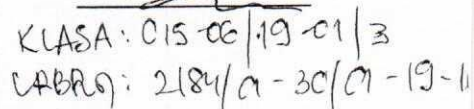 KLASA: 015-06/19-01/3
URBROJ: 2184/01-30/01-19-11